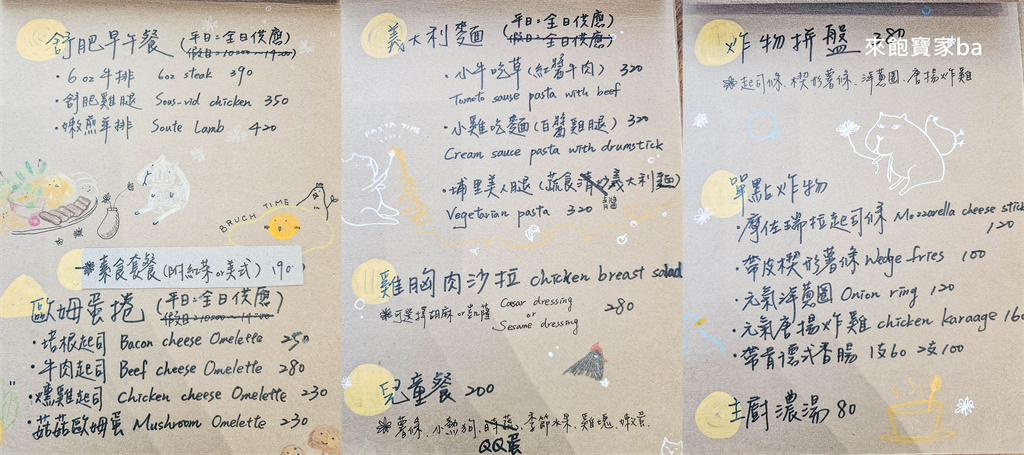 舒肥早午餐 (平日:全日供應)
・6oz牛排 6oz steak 390
・舒肥雞腿 Sous-vid chicken 350
・嫩煎羊排 Soute Lamb 420
BRUCH TIME
素食套餐(附紅茶or美式) 190
歐姆蛋捲 (平日:全日供應)
・培根起司 Bacon cheese Omelette 250
・牛肉起司 Beef cheese Omelette 280
・燻雞起司 Chicken cheese Omelette 230
・菇菇歐姆蛋 Mushroom Omelette 230
義大利麵 (平日:全日供應)
(假日:全日供應)
・小牛吃草(紅醬牛肉) 320
Tomoto sause pasta with beef
・小雞吃麵(白醬雞腿) 320
Cream sauce pasta with drumstick
PASTA TIME
・埔里美人腿(蔬食清炒義大利麵)
青醬
Vegetarian pasta 320
雞胸肉沙拉 chicken breast salad
※可選擇胡麻or凱薩 Casar dressing or Sesame dressing 280
兒童餐 200
※薯條、小熱狗、時蔬、季節水果、雞塊、嫩蛋
QQ蛋
炸物拼盤 280
來飽寶家ba
※起司條、楔形薯條、洋蔥圈、唐揚炸雞
單點炸物
・摩佐瑞拉起司條 Mozzarella cheese stick 120
・帶皮楔形薯條 Wedge fries 100
・元氣洋蔥圈 Onion ring 120
・元氣唐揚炸雞 chicken karaage 160
・帶骨德式香腸 1支60 2支100
主廚濃湯 80